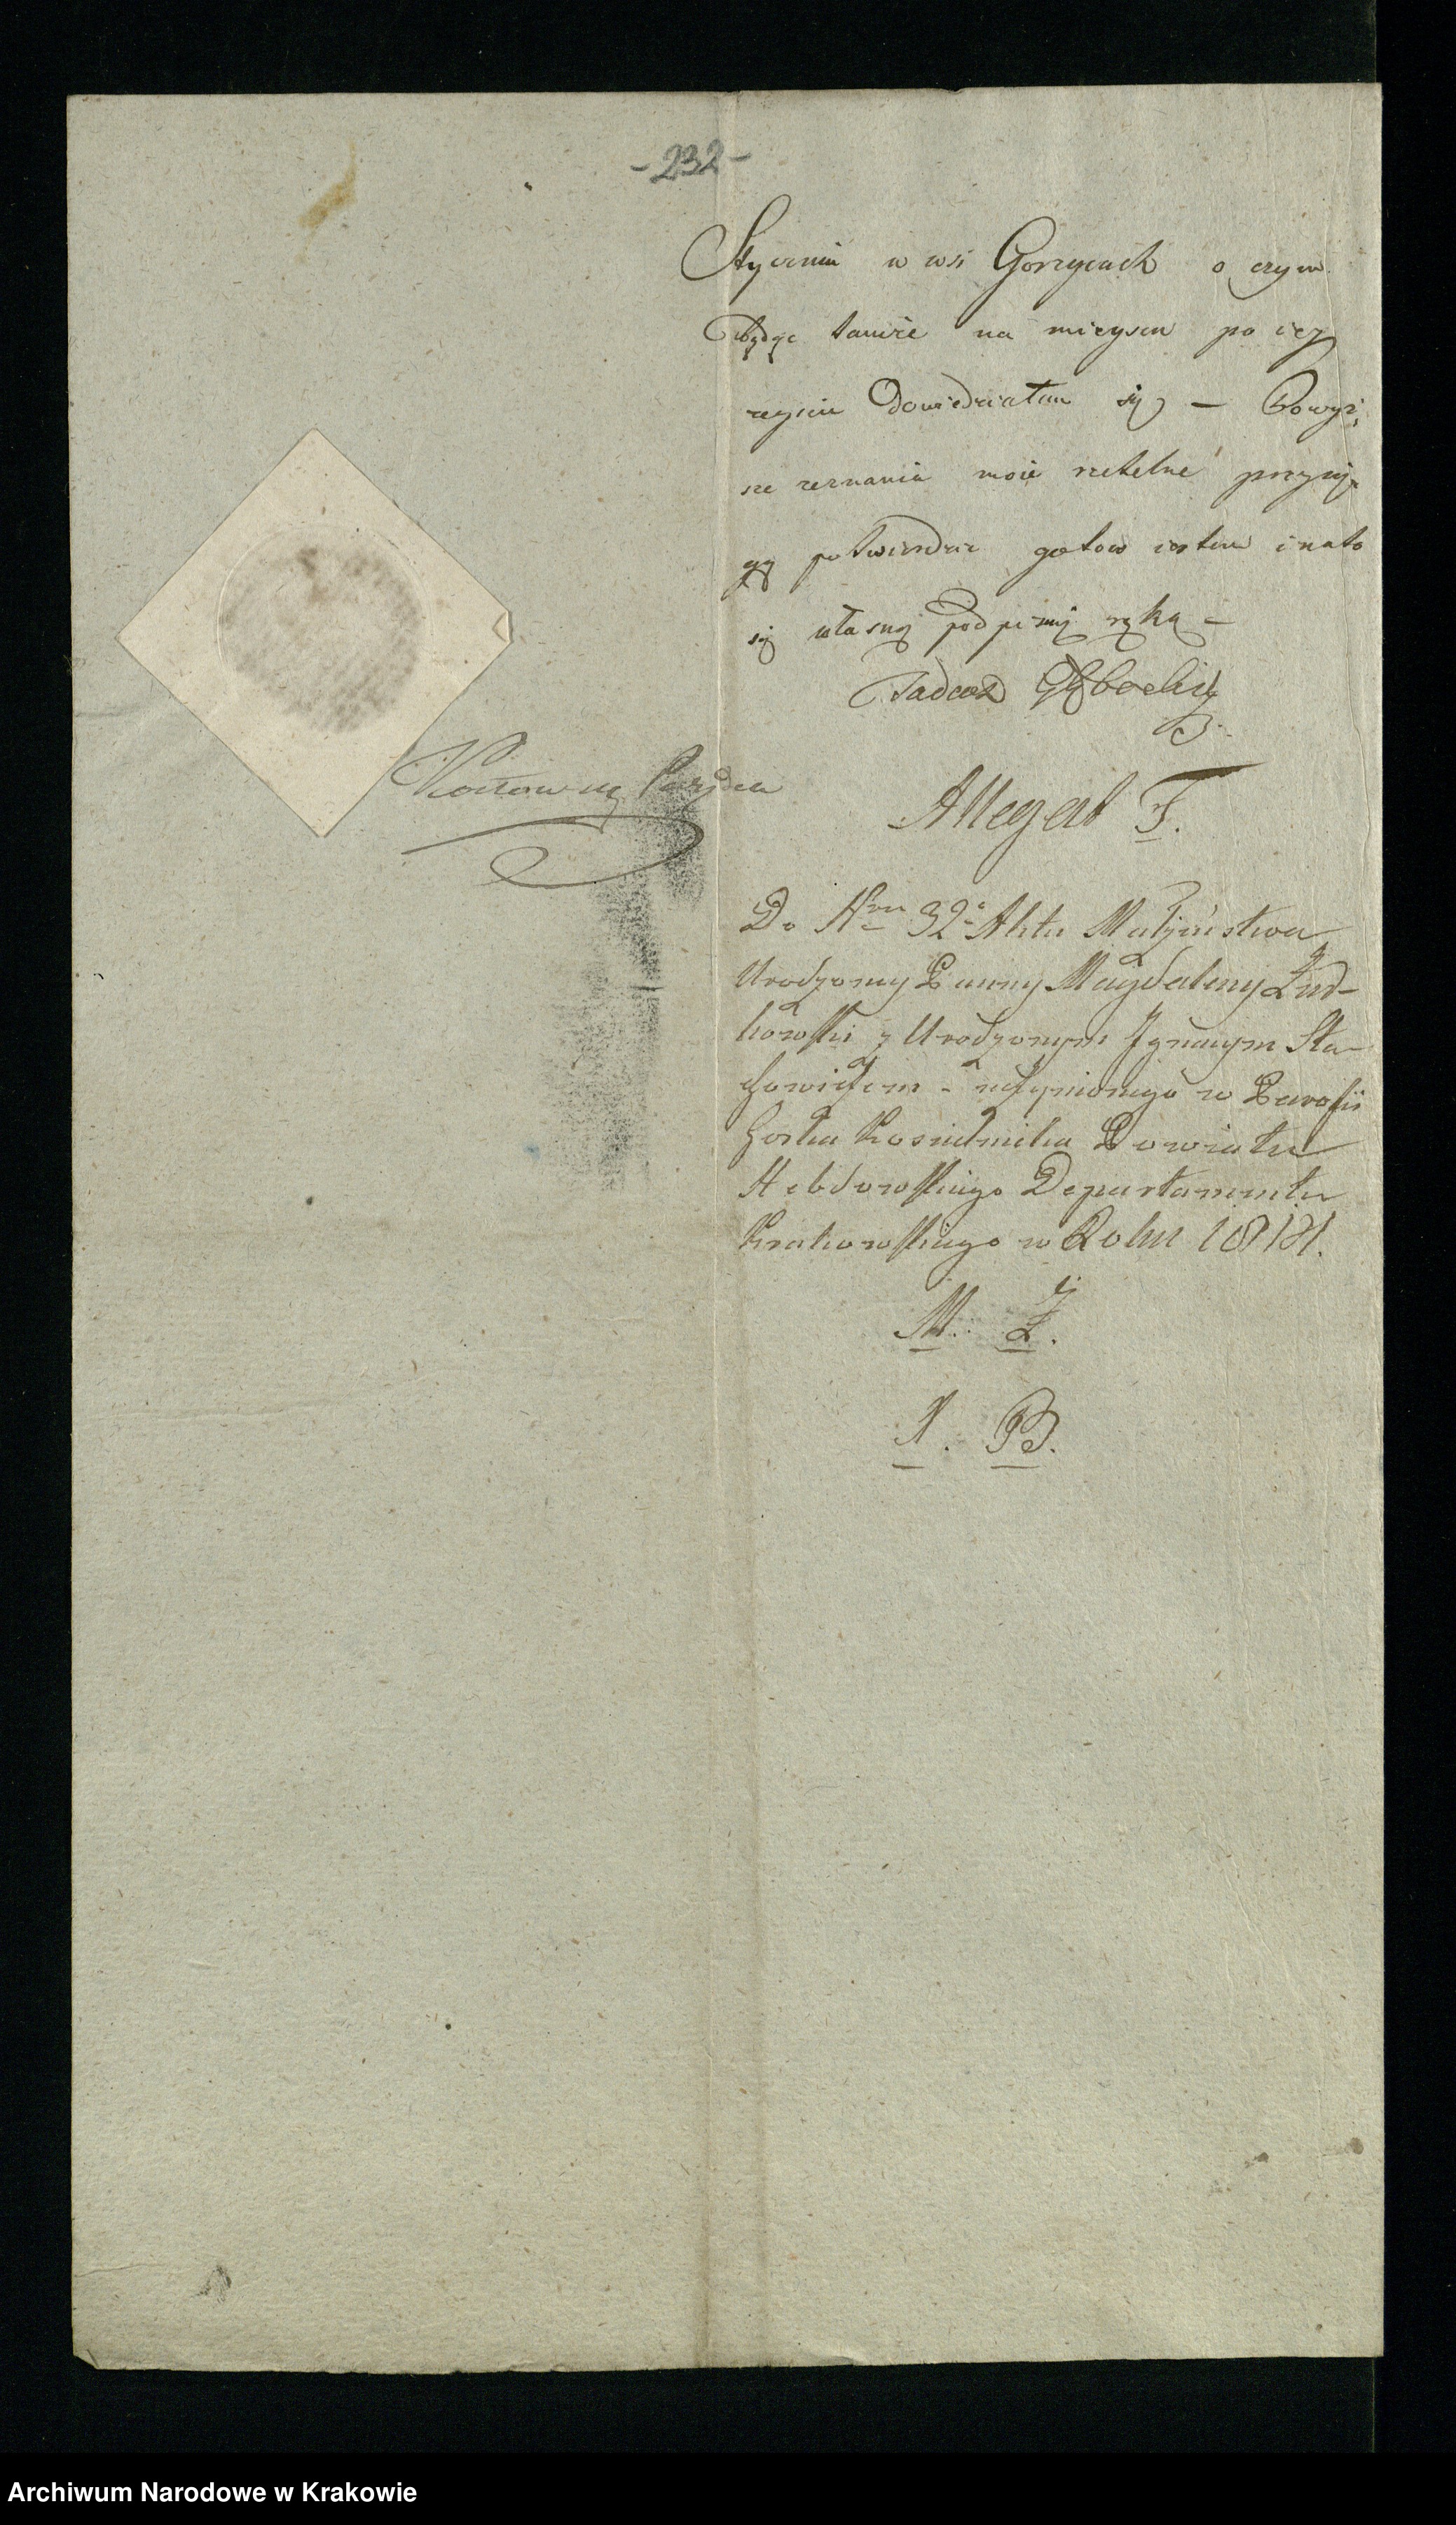 -232-
Stycznia w wsi Gorzycach o czym
będąc tamże na mieyscu po iey
zeyściu dowiedziałem się — Powyż,
sze zeznania moie rzetelne przysię,
gą potwierdzić gotow iestem i na to
się własną podpisuię ręką —
Tadeusz Głębocki
Allegat F.
Do Nru 32º Aktu Małżeństwa
Urodzoney Panny Magdaleny Żud-
kowski z Urodzonym Ignacym Sta-
chowiczem - uczynionego w Parafii
Gorka Kościelnicka Powiatu
Hebdowskiego Departamentu
Krakowskiego w Roku 181
M. Ż.
N. B.
Archiwum Narodowe w Krakowie